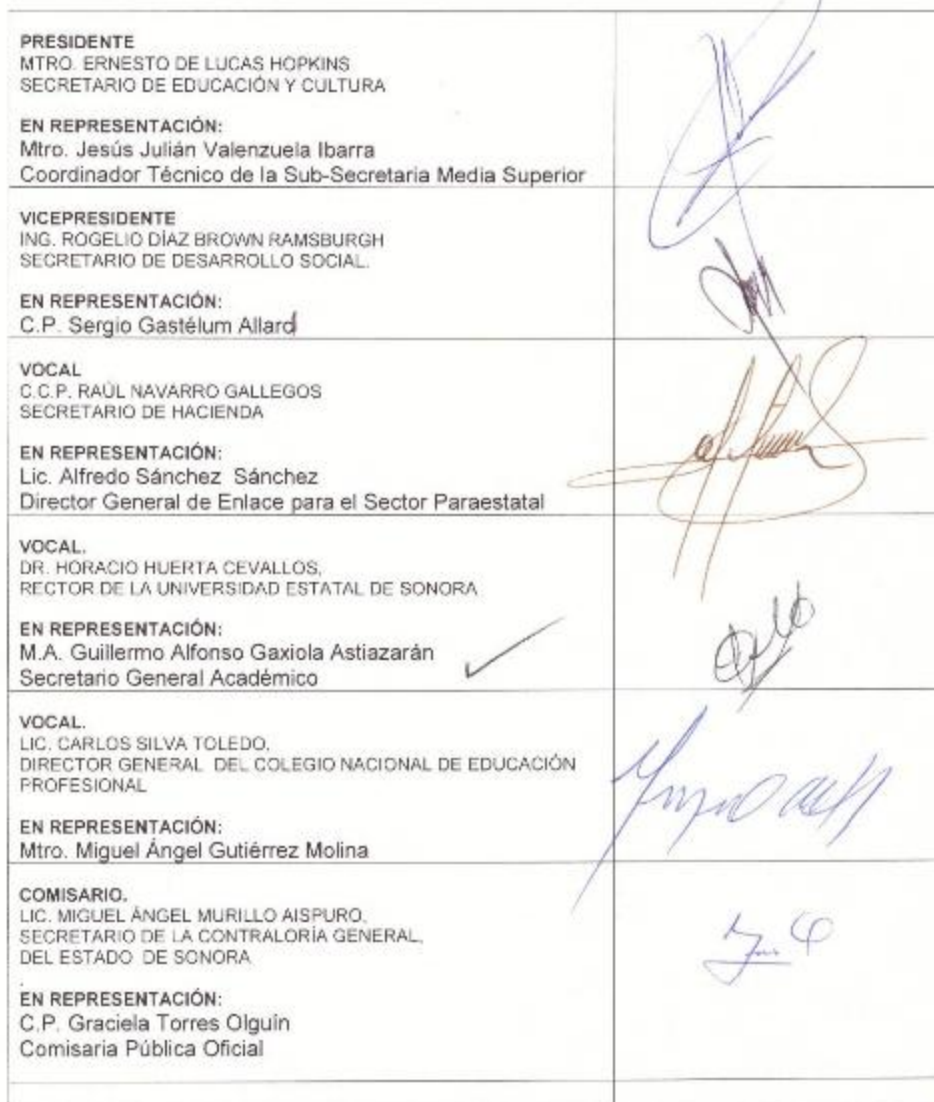 PRESIDENTE
MTRO. ERNESTO DE LUCAS HOPKINS
SECRETARIO DE EDUCACIÓN Y CULTURA
EN REPRESENTACIÓN:
Mtro. Jesús Julián Valenzuela Ibarra
Coordinador Técnico de la Sub-Secretaria Media Superior
VICEPRESIDENTE
ING. ROGELIO DÍAZ BROWN RAMSBURGH
SECRETARIO DE DESARROLLO SOCIAL.
EN REPRESENTACIÓN:
C.P. Sergio Gastélum Allard
VOCAL
C.C.P. RAÚL NAVARRO GALLEGOS
SECRETARIO DE HACIENDA
EN REPRESENTACIÓN:
Lic. Alfredo Sánchez Sánchez
Director General de Enlace para el Sector Paraestatal
VOCAL.
DR. HORACIO HUERTA CEVALLOS,
RECTOR DE LA UNIVERSIDAD ESTATAL DE SONORA
EN REPRESENTACIÓN:
M.A. Guillermo Alfonso Gaxiola Astiazarán
Secretario General Académico
VOCAL.
LIC. CARLOS SILVA TOLEDO,
DIRECTOR GENERAL DEL COLEGIO NACIONAL DE EDUCACIÓN
PROFESIONAL
EN REPRESENTACIÓN:
Mtro. Miguel Ángel Gutiérrez Molina
COMISARIO.
LIC. MIGUEL ÁNGEL MURILLO AISPURO,
SECRETARIO DE LA CONTRALORÍA GENERAL,
DEL ESTADO DE SONORA
.
EN REPRESENTACIÓN:
C.P. Graciela Torres Olguín
Comisaria Pública Oficial